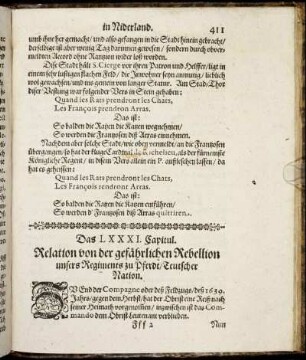 in Niderland. 411
und ihne her gemacht/ und also gefangen in die Stadt hinein gebracht/
derselbige ist aber wenig Tag darinnen gewesen/ sondern durch oben
meldten Accord ohne Rantzon wider loß worden.
Dise Stadt hält S. Cierge vor ihren Patron und Helffer/ ligt in
einem sehr lustigen flachen Feld/ die Inwohner seyn anmutig/ lieblich
wol gewachsen/ und ins gemein von langer Statur. Am Stadt-Thor
diser Vestung war folgender Vers in Stein gehaben:
Quand les Rats prendront les Chats,
Les François prendront Arras.
Das ist:
So balden die Ratzen die Katzen wegnehmen/
So werden die Frantzosen diß Arras einnehmen.
Nachdem aber solche Stadt/ wie oben vermeldt/ an die Frantzosen
übergangen/ so hat der kluge Cardinal de Richelieu, als der fürnemste
Königliche Regent/ in disem Vers nur ein P. außleschen lassen/ da
hat es geheissen:
Quand les Rats rendront les Chats,
Les François rendront Arras.
Das ist:
So balden die Ratzen die Katzen entführen/
So werden d' Frantzosen diß Arras quittiren.
Das LXXXI. Capitul.
Relation von der gefährlichen Rebellion
unsers Regiments zu Pferdt/ Teutscher
Nation.
ZU End der Compagne oder deß Feldzugs/ deß 1639.
Jahrs/ gegen dem Herbst/ hat der Obrist eine Reiß nach
seiner Heimath vorgenommen/ inzwischen ist das Com-
mando dem Obrist-Leutenant verbliben.
Fff 2 Nun